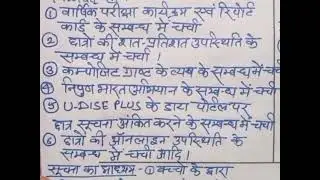 ① वार्षिक परीक्षा कार्यक्रम एवं रिपोर्ट
कार्ड के सम्बन्ध में चर्चा
② छात्रों की शत-प्रतिशत उपस्थिति के
सम्बन्ध में चर्चा।
③ कम्पोजिट ग्राण्ट के व्यय के सम्बन्ध में चर्चा
④ निपुण भारत अभियान के सम्बन्ध में चर्चा
⑤ U-DISE PLUS के डाटा पोर्टल पर
छात्र सूचना अंकित करने के सम्बन्ध में चर्चा
⑥ छात्रों की ऑनलाइन उपस्थिति के
सम्बन्ध में चर्चा आदि।
सूचना का माध्यम - ① बच्चों के द्वारा